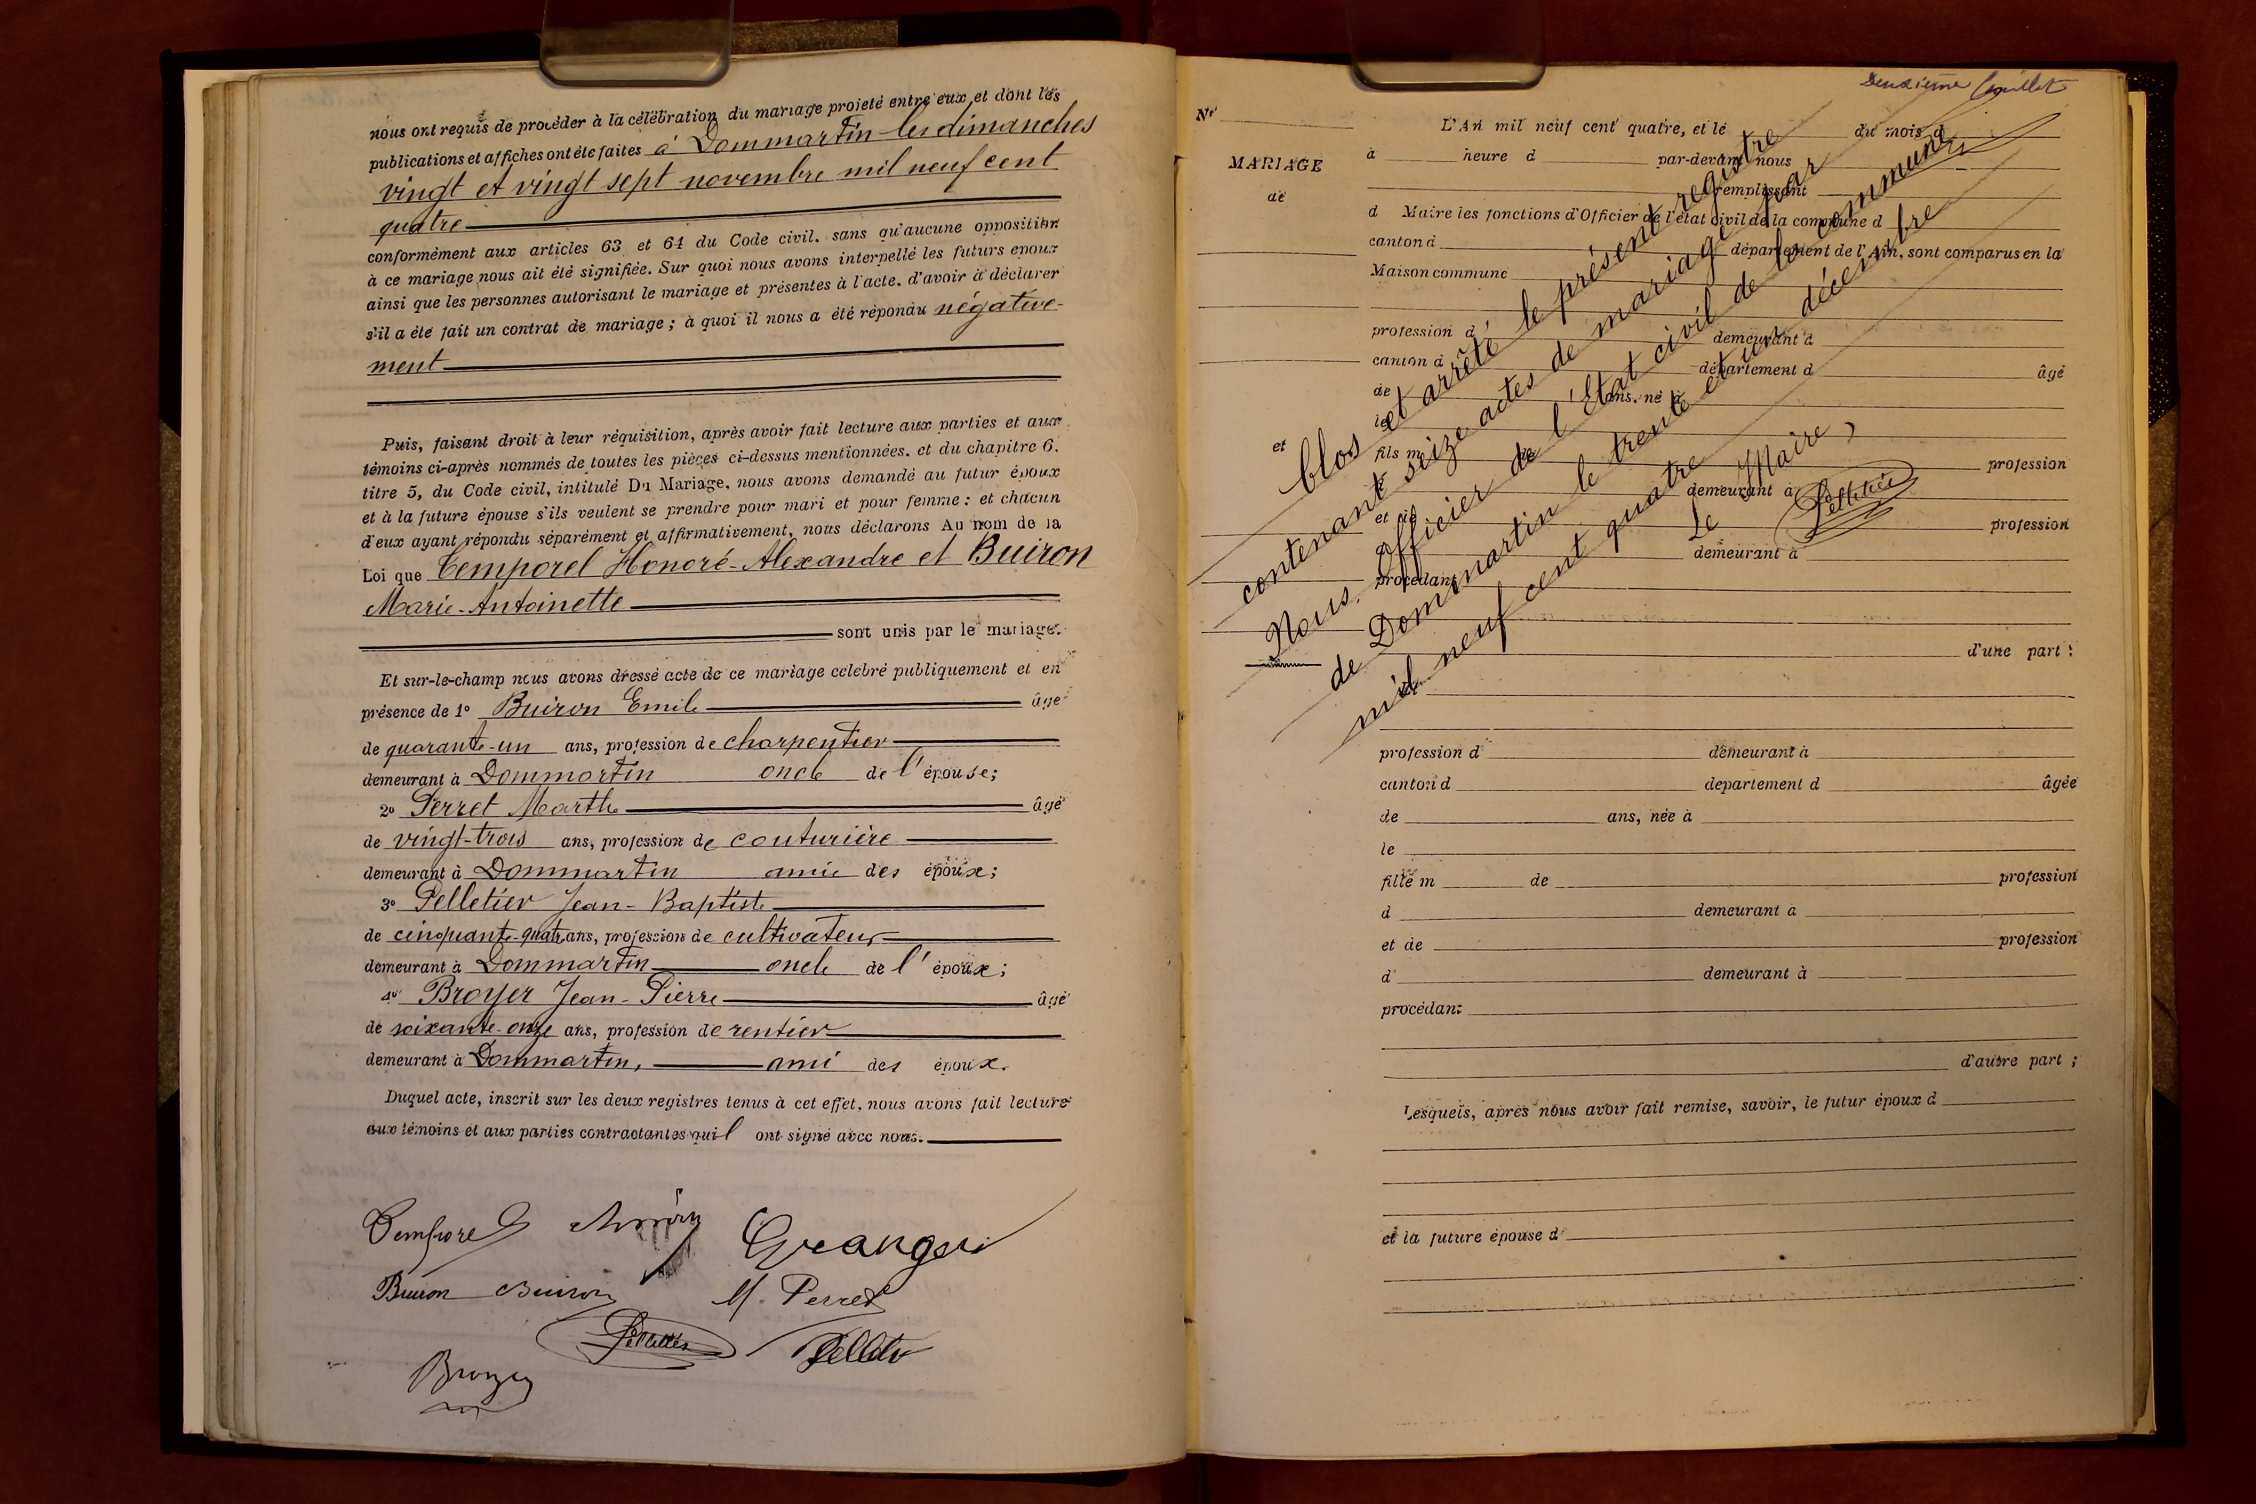 nous ont requis de procéder à la célébration du mariage projeté entre eux et dont les
publications et affiches ont été faites à Dommartin les dimanches
vingt et vingt sept novembre mil neuf cent
quatre
conformément aux articles 63 et 64 du Code civil. sans qu'aucune opposition
à ce mariage nous ait été signifiée. Sur quoi nous avons interpellé les futurs epoux
ainsi que les personnes autorisant le mariage et présentes à l'acte. d'avoir à déclarer
s'il a été fait un contrat de mariage ; à quoi il nous a été répondu négative-
ment
Puis, faisant droit à leur réquisition, après avoir fait lecture aux parties et aux
témoins ci-après nommés de toutes les pièces ci-dessus mentionnées. et du chapitre 6.
titre 5, du Code civil, intitulé Du Mariage, nous avons demandé au futur époux
et à la future épouse s'ils veulent se prendre pour mari et pour femme : et chacun
d'eux ayant répondu séparément et affirmativement, nous déclarons Au nom de la
Loi que Temporel Honoré-Alexandre et Buiron
Marie-Antoinette
sont unis par le mariage.
Et sur-le-champ nous avons dressé acte de ce mariage celebré publiquement et en
présence de 1° Buiron Emile âgé
de quarante-un ans, profession de charpentier
demeurant à Dommartin oncle de l'épouse;
2° Perret Marthe âgé
de vingt-trois ans, profession de couturière
demeurant à Dommartin amie des époux;
3° Pelletier Jean-Baptiste
de cinquante-quatre ans, profession de cultivateur
demeurant à Dommartin oncle de l'époux;
4° Broyer Jean-Pierre âgé
de soixante-onze ans, profession de rentier
demeurant à Dommartin, ami des époux.
Duquel acte, inscrit sur les deux registres tenus à cet effet, nous avons fait lecture
aux témoins et aux parties contractantes qui l ont signé avec nous.
Temporel Granger
Buiron Buiron M. Perret
Pelletier Pelletier
Broyer
Deuxième feuillet
N°
L'An mil neuf cent quatre, et le du mois d
MARIAGE
à heure d par-devant nous
de
remplissant
d Maire les fonctions d'Officier de l'état civil de la commune d
canton d département de l'Ain, sont comparus en la
Maison commune
profession d demeurant à
canton d département d âgé
de ans, né à
le
et
fils m de profession
d demeurant à
et de profession
d demeurant à
procédant
d'une part :
Clos et arrêté le présent registre
contenant seize actes de mariage par
Nous, Officier de l'Etat civil de la commune
de Dommartin le trente et un décembre
mil neuf cent quatre
Le Maire,
Pelletier
profession d demeurant à
canton d departement d âgée
de ans, née à
le
fille m de profession
d demeurant à
et de profession
d demeurant à
procédant
d'autre part ;
Lesquels, après nous avoir fait remise, savoir, le futur époux d
et la future épouse d